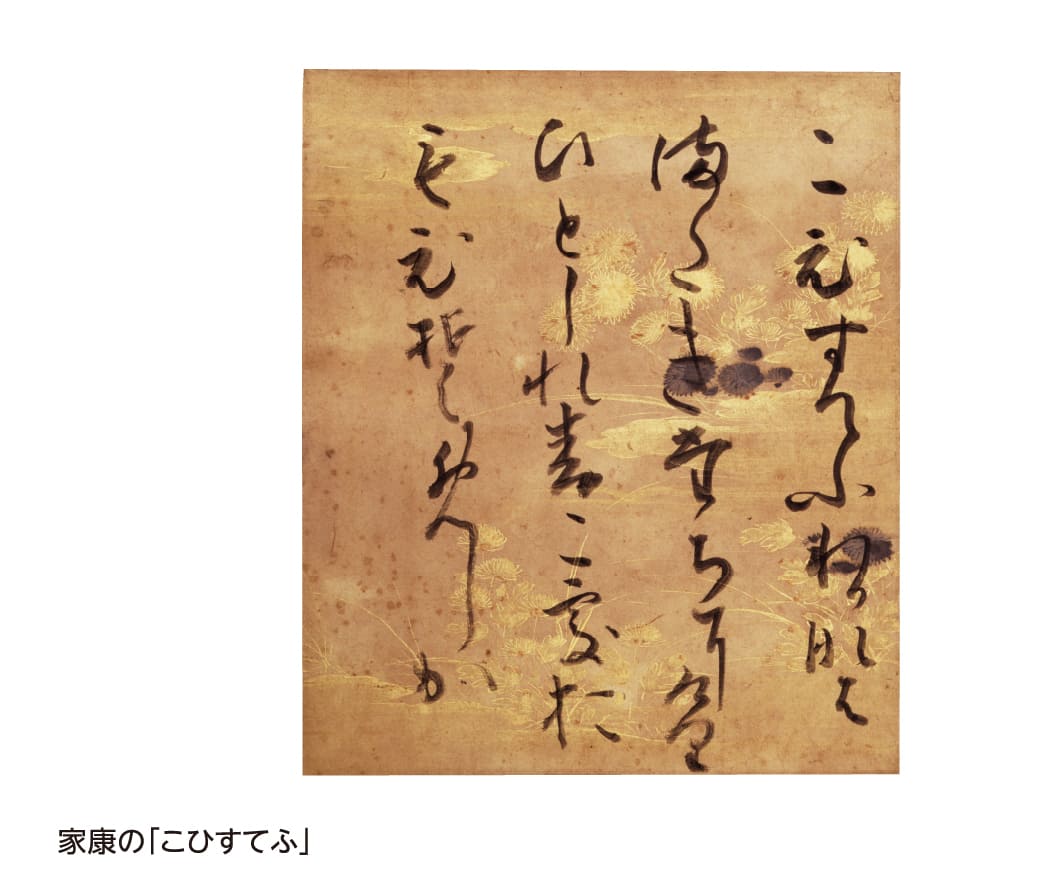 こひすてふわかなは
またきたちにけり
ひとしれすこそお
もひそめしか
家康の「こひすてふ」